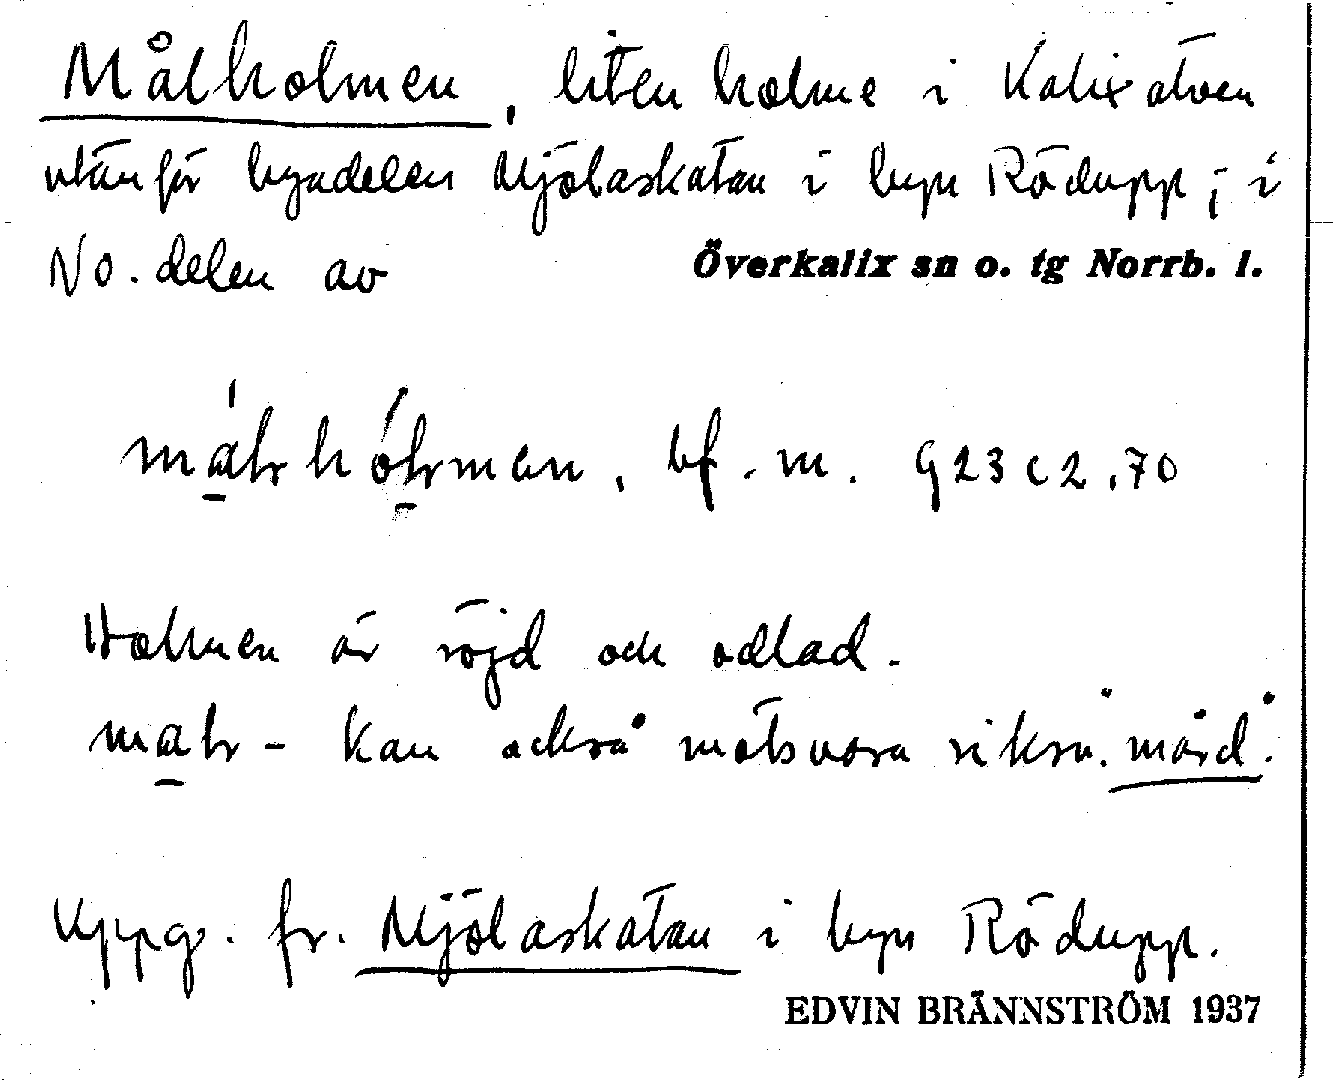 Målholmen, liten holme i Kalix älven
utanför byadelen Mjölaskatan i byn Rödupp; i
No. delen av Överkalix sn o. tg Norrb. l.
bf. m. 923 c 2,70
Holmen är röjd och odlad.
kan också motsvara riksv. mård.
Uppg. fr. Mjölaskatan i byn Rödupp.
EDVIN BRÄNNSTRÖM 1937